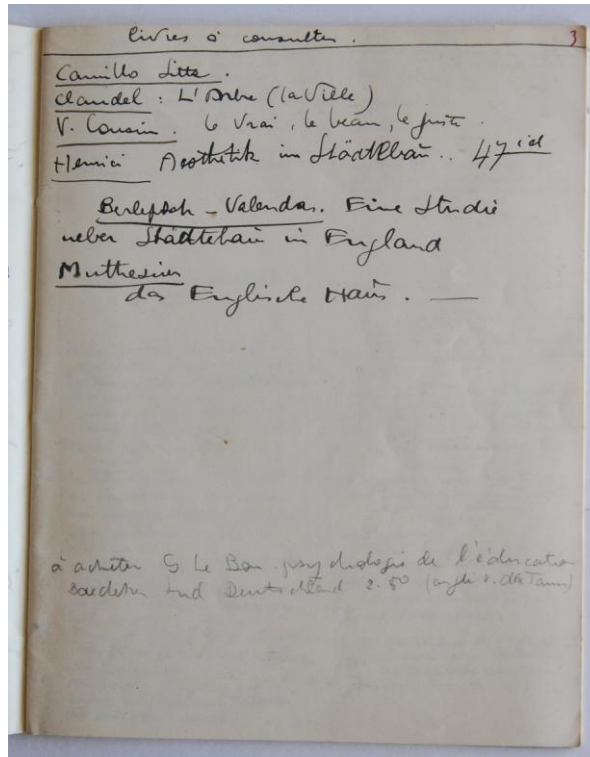 livres à consulter. 3
Camillo Sitte.
Claudel : L'Arbre (la Ville)
V. Cousin. le Vrai, le beau, le juste.
Henrici Aesthetik im Städtebau.. 47 id
Berlepsch-Valendas. Eine Studie
ueber Städtebau in England
Muthesius
das Englische Haus. —
à acheter G Le Bon psychologie de l'éducation
Baedeker Sud Deutschland 2.50 (angle v. der Tann)